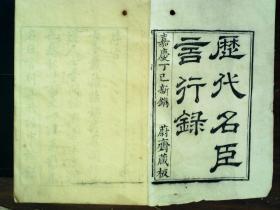 歷代名臣
言行録
嘉慶丁巳新鐫
蔚齋藏板